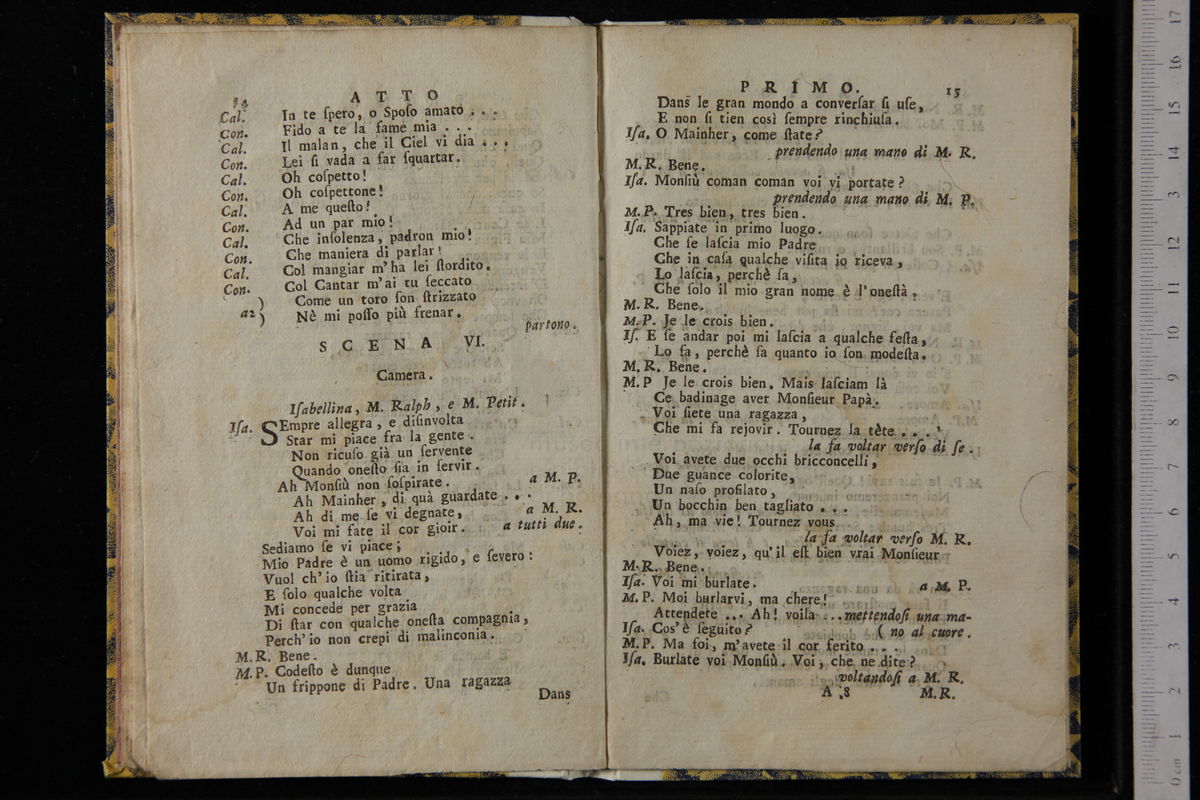 14
ATTO
Cal. In te ſpero, o Spoſo amato . . .
Con. Fido a te la fame mia . . .
Cal. Il malan, che il Ciel vi dia . . .
Con. Lei ſi vada a far ſquartar.
Cal. Oh coſpetto!
Con. Oh coſpettone!
Cal. A me queſto!
Con. Ad un par mio!
Cal. Che inſolenza, padron mio!
Con. Che maniera di parlar!
Cal. Col mangiar m'ha lei ſtordito.
Con. Col Cantar m'ai tu ſeccato
a2 ) Come un toro ſon ſtrizzato
) Nè mi poſſo più frenar.
partono.
SCENA VI.
Camera.
Iſabellina, M. Ralph, e M. Petit.
Iſa. SEmpre allegra, e diſinvolta
Star mi piace fra la gente.
Non ricuſo già un ſervente
Quando oneſto ſia in ſervir.
Ah Monſiù non ſoſpirate. a M. P.
Ah Mainher, di quà guardate . . .
Ah di me ſe vi degnate, a M. R.
Voi mi fate il cor gioir. a tutti due.
Sediamo ſe vi piace;
Mio Padre è un uomo rigido, e ſevero:
Vuol ch'io ſtia ritirata,
E ſolo qualche volta
Mi concede per grazia
Di ſtar con qualche oneſta compagnia,
Perch'io non crepi di malinconia.
M.R. Bene.
M.P. Codeſto è dunque
Un frippone di Padre. Una ragazza
Dans
PRIMO.
15
Dans le gran mondo a converſar ſi uſe,
E non ſi tien così ſempre rinchiuſa.
Iſa. O Mainher, come ſtate?
prendendo una mano di M. R.
M.R. Bene.
Iſa. Monſiù coman coman voi vi portate?
prendendo una mano di M. P.
M.P. Tres bien, tres bien.
Iſa. Sappiate in primo luogo.
Che ſe laſcia mio Padre
Che in caſa qualche viſita io riceva,
Lo laſcia, perchè ſa,
Che ſolo il mio gran nome è l'oneſtà.
M.R. Bene.
M.P. Je le crois bien.
Iſ. E ſe andar poi mi laſcia a qualche feſta,
Lo fa, perchè ſa quanto io ſon modeſta.
M.R. Bene.
M.P Je le crois bien. Mais laſciam là
Ce badinage aver Monſieur Papà.
Voi ſiete una ragazza,
Che mi fa rejovir. Tournez la tète . . .
la fa voltar verſo di ſe.
Voi avete due occhi bricconcelli,
Due guance colorite,
Un naſo profilato,
Un bocchin ben tagliato . . .
Ah, ma vie! Tournez vous
la fa voltar verſo M. R.
Voiez, voiez, qu'il eſt bien vrai Monſieur
M.R. Bene.
Iſa. Voi mi burlate. a M. P.
M.P. Moi burlarvi, ma chere!
Attendete ... Ah! voila ... mettendoſi una ma-
Iſa. Cos'è ſeguito? ( no al cuore.
M.P. Ma foi, m'avete il cor ferito . . .
Iſa. Burlate voi Monſiù. Voi, che ne dite?
voltandoſi a M. R.
A 8 M.R.